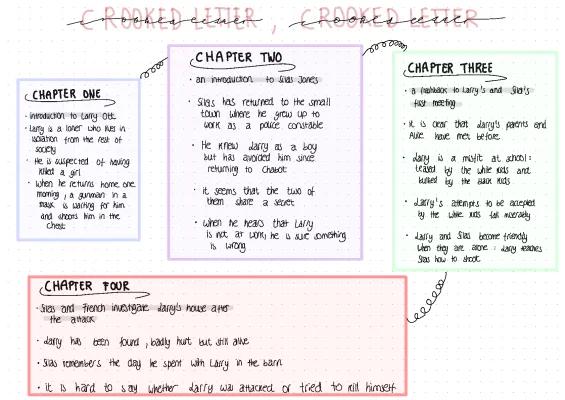 CROOKED LETTER, CROOKED LETTER
CHAPTER ONE
• introduction to Larry Ott
• Larry is a loner who lives in
isolation from the rest of
society
• He is suspected of having
killed a girl
• When he returns home one
morning, a gunman in a
mask is waiting for him
and shoots him in the
chest
CHAPTER TWO
• an introduction to Silas Jones
• Silas has returned to the small
town where he grew up to
work as a police constable
• He knew Larry as a boy
but has avoided him since
returning to Chabot
• it seems that the two of
them share a secret
• when he hears that Larry
is not at work, he is sure something
is wrong
CHAPTER THREE
• a flashback to Larry's and Silas's
first meeting
• it is clear that Larry's parents and
Alice have met before
• Larry is a misfit at school:
teased by the white kids and
bullied by the black kids
• Larry's attempts to be accepted
by the white kids fail miserably
• Larry and Silas become friendly
when they are alone: Larry teaches
Silas how to shoot
CHAPTER FOUR
• Silas and French investigate Larry's house after
the attack
• Larry has been found, badly hurt but still alive
• Silas remembers the day he spent with Larry in the barn
• it is hard to say whether Larry was attacked or tried to kill himself